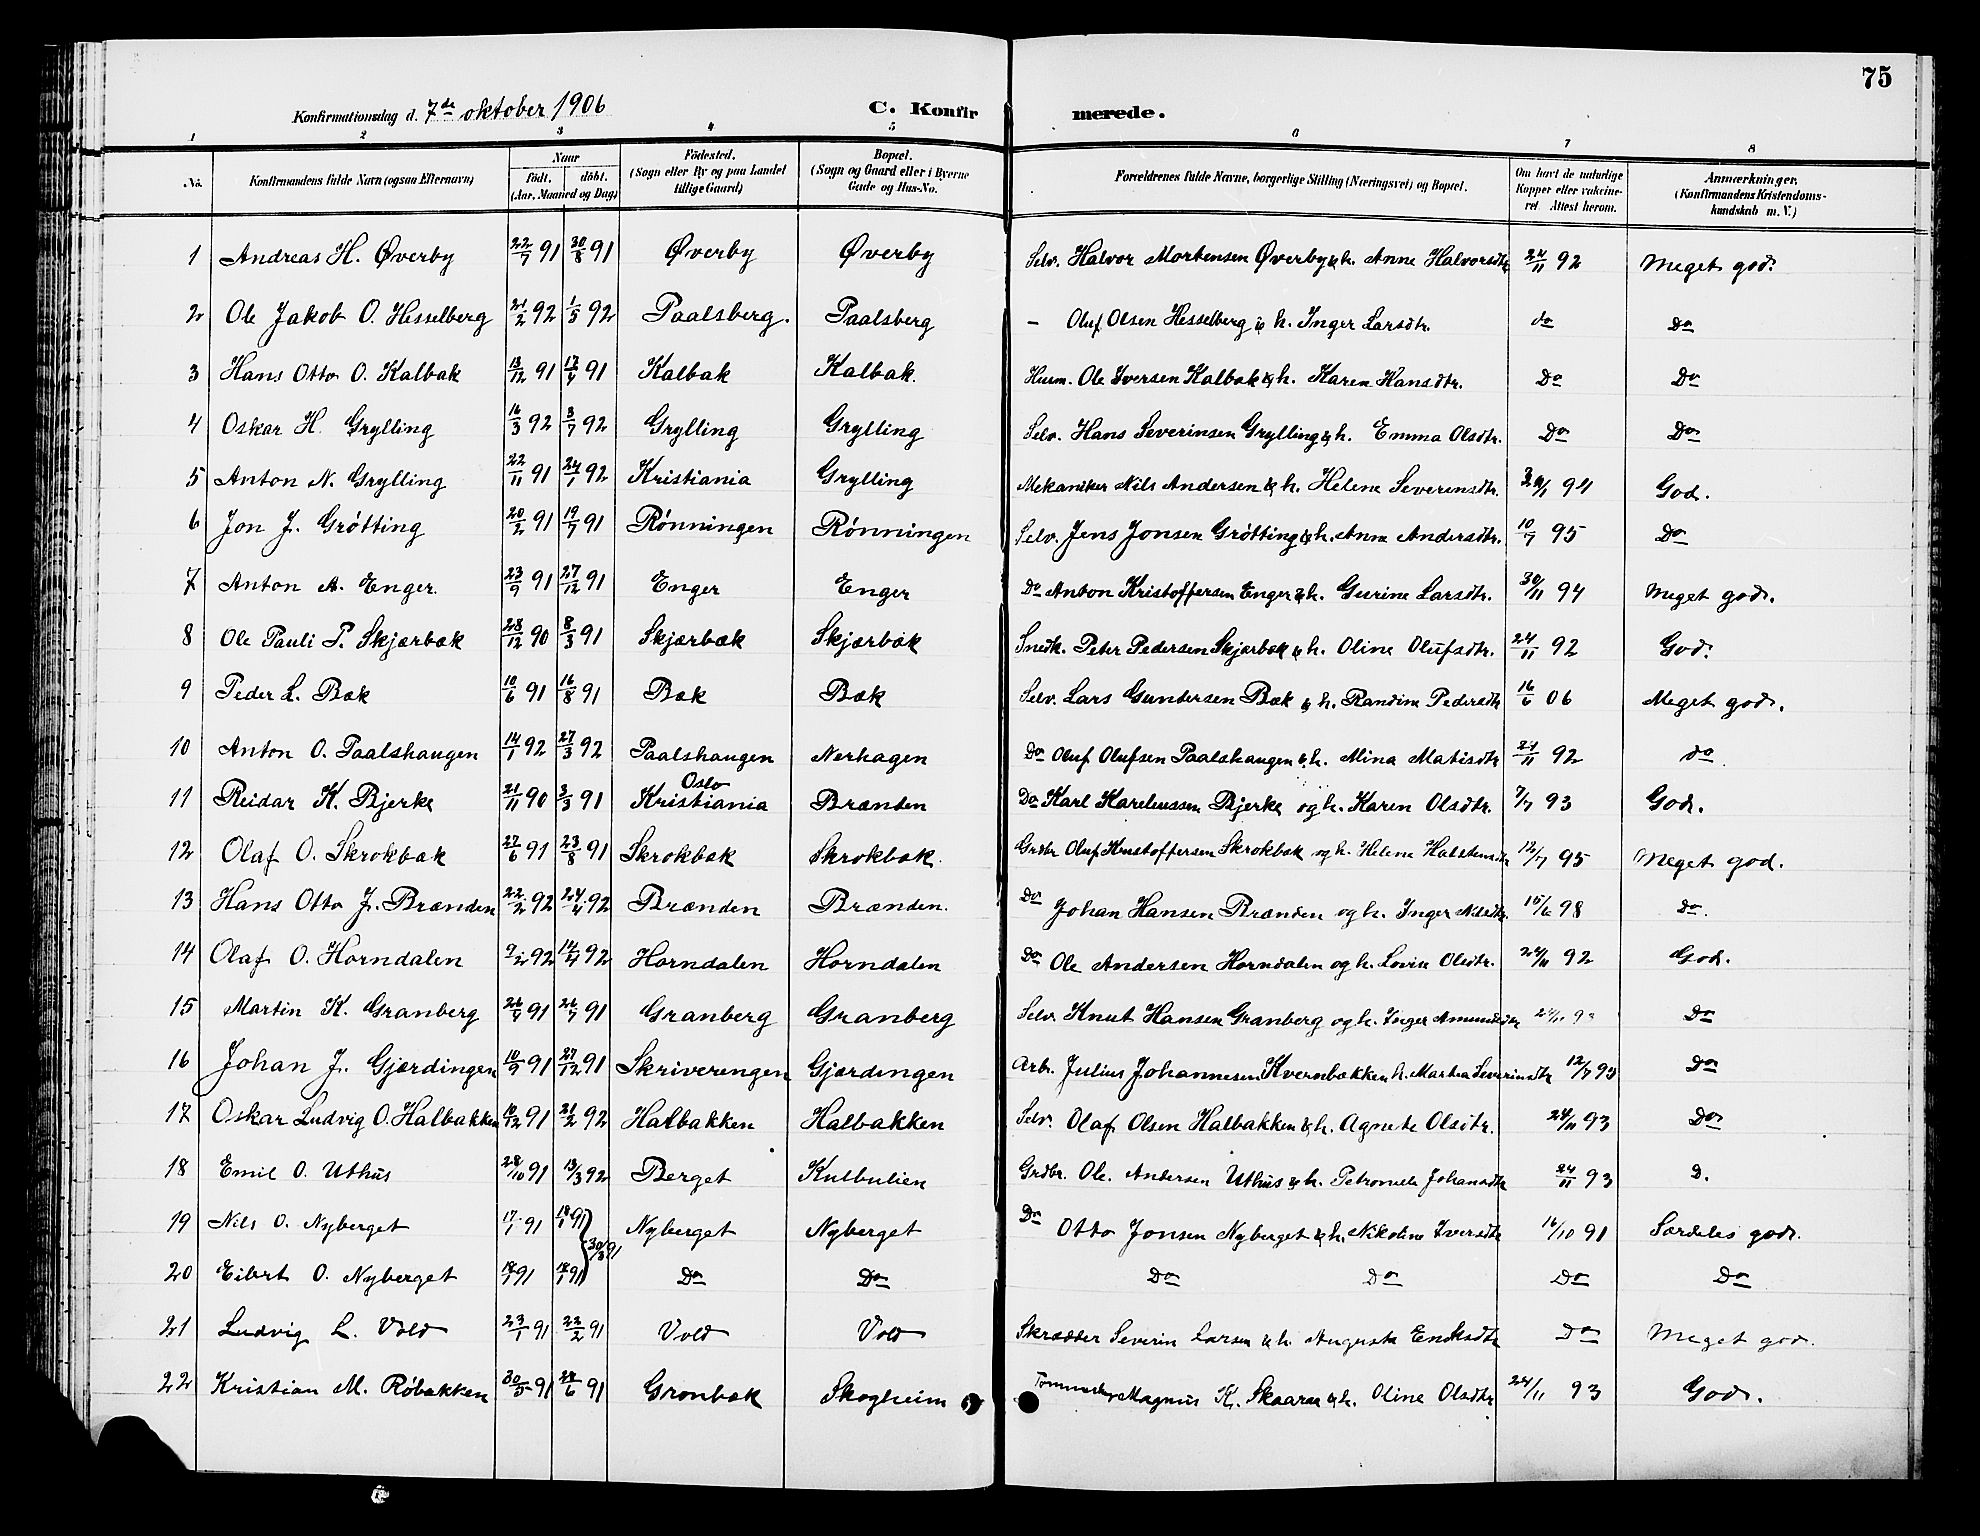 75
Konfirmationsdag d. 7de oktober 1906 C. Konfirmerede.
1 2 3 4 5 6 7 8
No. Konfirmandens fulde Navn (ogsaa Efternavn) Naar født. døbt. (Aar, Maaned og Dag) Fødested. (Sogn eller By og paa Landet tillige Gaard) Bopæl. (Sogn og Gaard eller i Byerne Gade og Hus-No. Forældrenes fulde Navne, borgerlige Stilling (Næringsvei) og Bopæl. Om havt de naturlige Kopper eller vaccineret Attest herom. Anmærkninger, (Konfirmandens Kristendomskundskab m. V.)
1 Andreas H. Øverby 22/7 91 30/8 91 Øverby Øverby Selv. Halvor Mortensen Øverby & h. Anne Halvorsdtr 24/11 92 Meget god.
2 Ole Jakob O. Hesselberg 21/2 92 1/5 92 Paalsberg. Paalsberg – Oluf Olsen Hesselberg & h. Inger Larsdtr. do Do
3 Hans Otto O. Kalbak 13/12 91 17/4 91 Kalbak Kalbak. Husm. Ole Iversen Kalbak & h. Karen Hansdtr. Do Do
4 Oskar H. Grylling 16/3 92 3/7 92 Grylling Grylling Selv. Hans Severinsen Grylling & h. Emma Olsdtr. Do Do
5 Anton N. Grylling 22/11 91 24/1 92 Kristiania Grylling Mekaniker Nils Andersen & h. Helene Severinsdtr. 94 God.
6 Jon J. Grøtting 20/2 91 19/7 91 Rønningen Rønningen Selv. Jens Jonsen Grøtting & h. Anne Andersdtr. 10/7 95 Do
7 Anton A. Enger. 23/9 91 27/12 91 Enger Enger Do Anton Kristoffersen Enger & h. Gurine Larsdtr. 30/11 94 Meget god.
8 Ole Pauli P. Skjærbæk 28/12 90 8/3 91 Skjærbæk Skjærbæk Snedk. Peter Pedersen Skjærbæk & h. Oline Olufsdtr. 24/11 92 God.
9 Peder L. Bæk 10/6 91 16/8 91 Bæk Bæk Selv. Lars Gundersen Bæk & h. Randine Pedersdtr 16/6 06 Meget god.
10 Anton O. Paalshaugen 14/1 92 27/3 92 Paalshaugen Nerhagen Do Oluf Olufsen Paalshaugen & h. Mina Matisdtr 24/11 92 do
11 Reidar K. Bjerke 21/11 90 3/3 91 Oslo Kristiania Brænden Do Karl Kareliussen Bjerke og h. Karen Olsdtr. 7/7 93 God.
12 Olaf O. Skrokbæk 27/6 91 23/8 91 Skrokbæk Skrokbæk. Grdbr Oluf Kristoffersen Skrokbæk og h. Helene Halstensdtr 12/7 95 Meget god.
13 Hans Otto J. Brænden 22/2 92 24/4 92 Brænden Brænden. Do Johan Hansen Brænden og h. Inger Nilsdtr. 15/6 98 do.
14 Olaf O. Horndalen 9/2 92 14/4 92 Horndalen Horndalen Do Ole Andersen Horndalen og h. Lovise Olsdtr. 24/11 92 God.
15 Martin K. Granberg 91 26/7 91 Granberg Granberg Selv. Knut Hansen Granberg og h. Inger Amundsdtr Do
16 Johan J. Gjærdingen 10/9 91 27/12 91 Skriverengen Gjærdingen Arb. Julius Johannesen Kvernbækken h. Marthea Severinsdtr 12/7 95 Do
17 Oskar Ludvig O. Halbakken 10/12 91 21/2 92 Halbakken Halbakken Selv. Olaf Olsen Halbakken & h. Agnete Olsdtr. 24/11 93 Do
18 Emil O. Uthus 28/10 91 13/3 92 Berget Kulbulien Grdbr. Ole. Andersen Uthus & h. Petronele Johansdtr 24/11 93 D.
19 Nils O. Nyberget 17/1 91 18/1 91 30/3 91 Nyberget Nyberget Do Otto Jonsen Nyberget & h. Nikoline Iversdtr 16/10 91 Særdeles god.
20 Eibert O. Nyberget 18/1 91 18/1 91 Do Do Do Do Do Do
21 Ludvig L. Vold 23/1 91 22/2 91 Vold Vold Skrædder Severin Larsen & h. Augusta Eriksdtr Do Meget god.
22 Kristian M. Røbakken 30/5 91 28/6 91 Grønbæk Skogheim Magnus K. Skaarer & h. Oline Olsdtr 24/11 93 God.